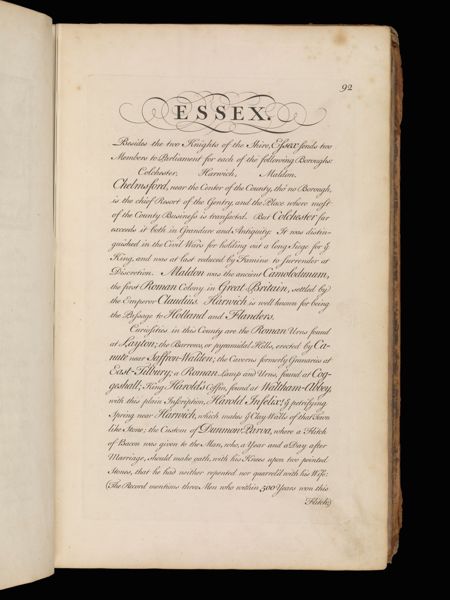 92
ESSEX.
Besides the two Knights of the Shire, Essex sends two
Members to Parliament for each of the following Boroughs:
Colchester, Harwich, Maldon.
Chelmsford, near the Center of the County, tho' no Borough,
is the chief Resort of the Gentry, and the Place where most
of the County Business is transacted. But Colchester far
exceeds it both in Grandure and Antiquity: It was distin-
guished in the Civil Wars for holding out a long Siege for ye
King, and was at last reduced by Famine to surrender at
Discretion. Maldon was the ancient Camolodunum,
the first Roman Colony in Great Britain, settled by
the Emperor Claudius. Harwich is well known for being
the Passage to Holland and Flanders.
Curiosities in this County are the Roman Urns found
at Layton; the Barrows, or pyramidal Hills, erected by Ca-
nute near Saffron-Walden; the Caverns formerly Granaries at
East-Tilbury; a Roman Lamp and Urns, found at Cog-
geshall; King Harold's Coffin, found at Waltham-Abbey,
with this plain Inscription, Harold Infelix! ye petrifying
Spring near Harwich, which makes ye Clay Walls of that Town
like Stone; the Custom of Dunmow Parva, where a Flitch
of Bacon was given to the Man, who, a Year and a Day after
Marriage, should make oath, with his Knees upon two pointed
Stones, that he had neither repented nor quarrel'd with his Wife:
(The Record mentions three Men who within 500 Years won this
Flitch)